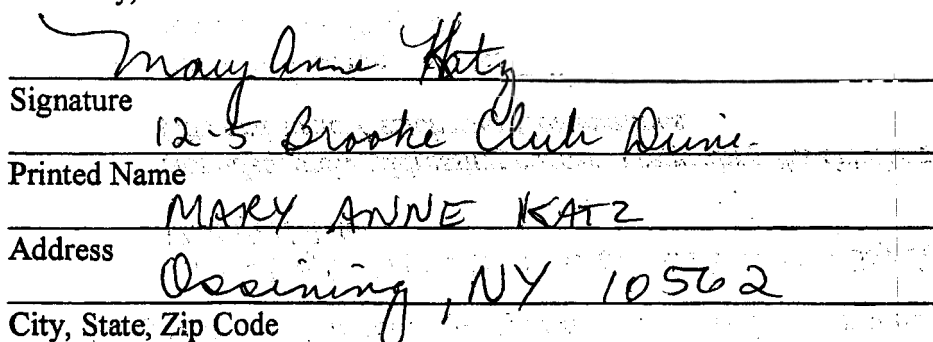 Mary Anne Katz
Signature
12-5 Brooke Club Drive
Printed Name
MARY ANNE KATZ
Address
Ossining, NY 10562
City, State, Zip Code